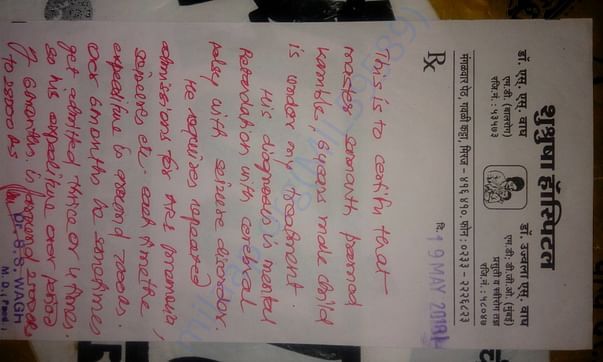 शुश्रुषा हॉस्पिटल
डॉ. एस. एस. वाघ
एम.डी. (बालरोग)
रजि.नं. : ५३५७३
डॉ. उज्वला एस. वाघ
एम.डी. डी.जी.ओ. (मुंबई)
प्रसुती व स्त्रीरोग तज्ञ
रजि.नं. : ५८०४७
मंगळवार पेठ, गवळी कट्टा, मिरज - ४१६ ४१०. फोन : ०२३३ - २२२६८२३
Rx
दि. 19 MAY 2018
This is to certify that
master Somnath pramod
Kamble, 6 years male child
is under my treatment.
His diagnosis is mental
Retardation with cerebral
palsy with seizure disorder.
He requires repeated
admissions for pneumonia,
seizures etc. each time the
expenditure is around
over 6 months he sometimes
get admitted thrice or 4 times.
so his expenditure over period
of 6 months is around
to
Dr. S. S. WAGH
M. D.